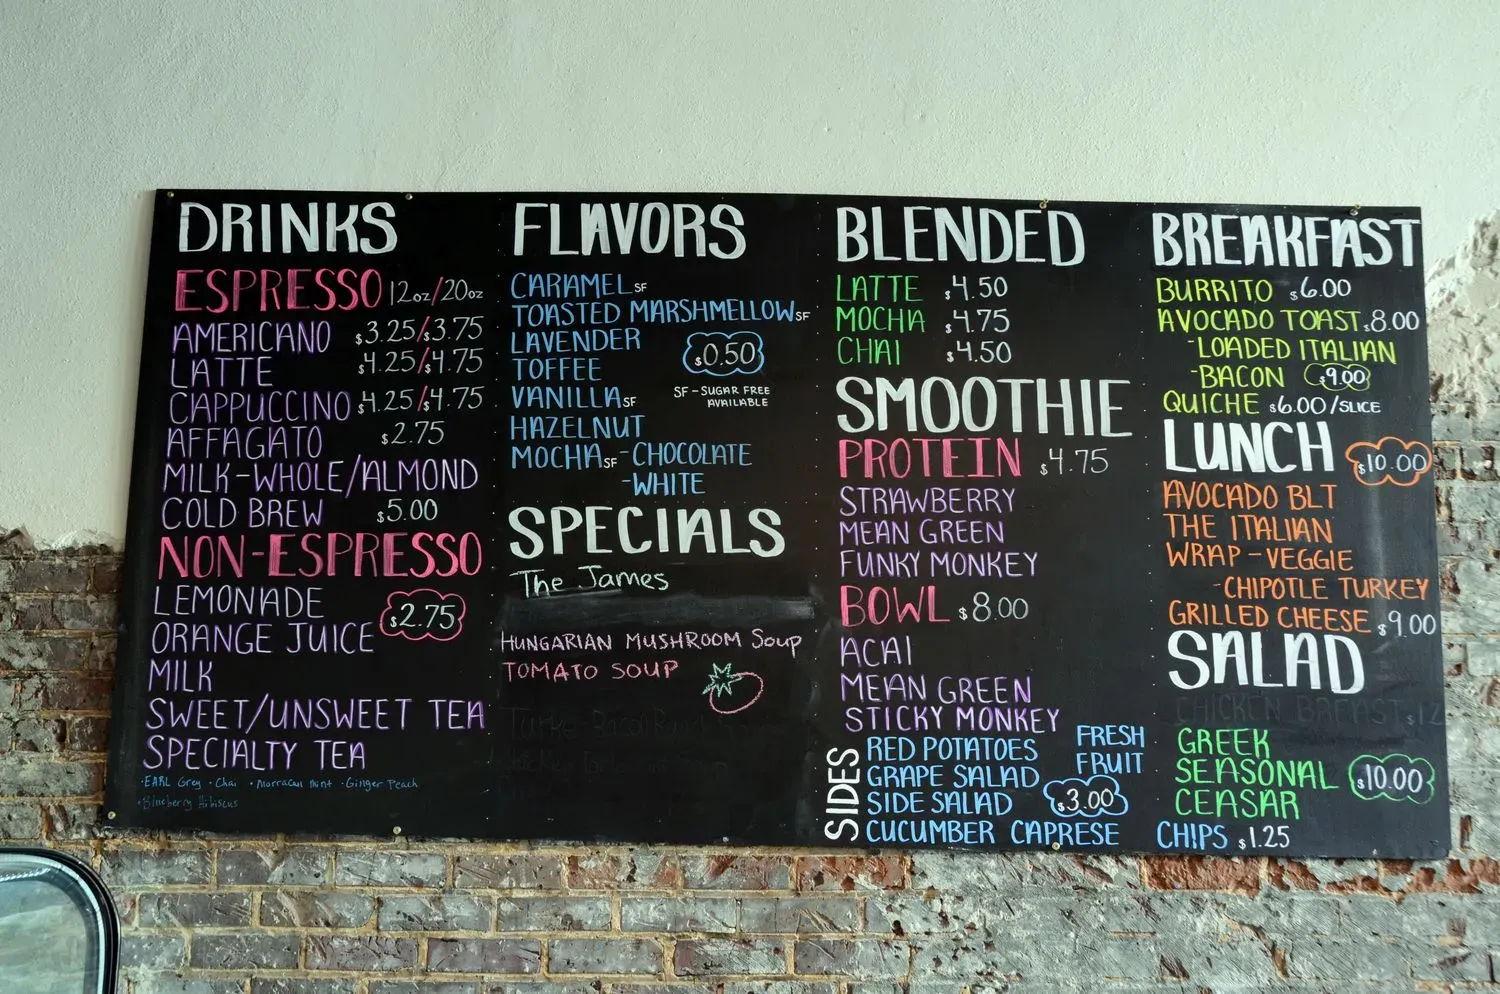 DRINKS
ESPRESSO 12oz/20oz
AMERICANO $3.25/$3.75
LATTE $4.25/$4.75
CAPPUCCINO $4.25/$4.75
AFFAGATO $2.75
MILK-WHOLE/ALMOND
COLD BREW $5.00
NON-ESPRESSO
LEMONADE
ORANGE JUICE $2.75
MILK
SWEET/UNSWEET TEA
SPECIALTY TEA
·EARL Grey ·Chai ·Morracan mint ·Ginger Peach
·Blueberry Hibiscus
FLAVORS
CARAMEL SF
TOASTED MARSHMELLOW SF
LAVENDER
TOFFEE $0.50
VANILLA SF
SF-SUGAR FREE
AVAILABLE
HAZELNUT
MOCHA SF -CHOCOLATE
-WHITE
SPECIALS
The James
HUNGARIAN MUSHROOM Soup
TOMATO SOUP
BLENDED
LATTE $4.50
MOCHA $4.75
CHAI $4.50
SMOOTHIE
PROTEIN $4.75
STRAWBERRY
MEAN GREEN
FUNKY MONKEY
BOWL $8.00
ACAI
MEAN GREEN
STICKY MONKEY
SIDES
RED POTATOES
GRAPE SALAD
SIDE SALAD
CUCUMBER CAPRESE
FRESH
FRUIT
$3.00
BREAKFAST
BURRITO $6.00
AVOCADO TOAST $8.00
-LOADED ITALIAN
-BACON $9.00
QUICHE $6.00/SLICE
LUNCH $10.00
AVOCADO BLT
THE ITALIAN
WRAP-VEGGIE
-CHIPOTLE TURKEY
GRILLED CHEESE $9.00
SALAD
CHICKEN BREAST $12
GREEK
SEASONAL $10.00
CEASAR
CHIPS $1.25